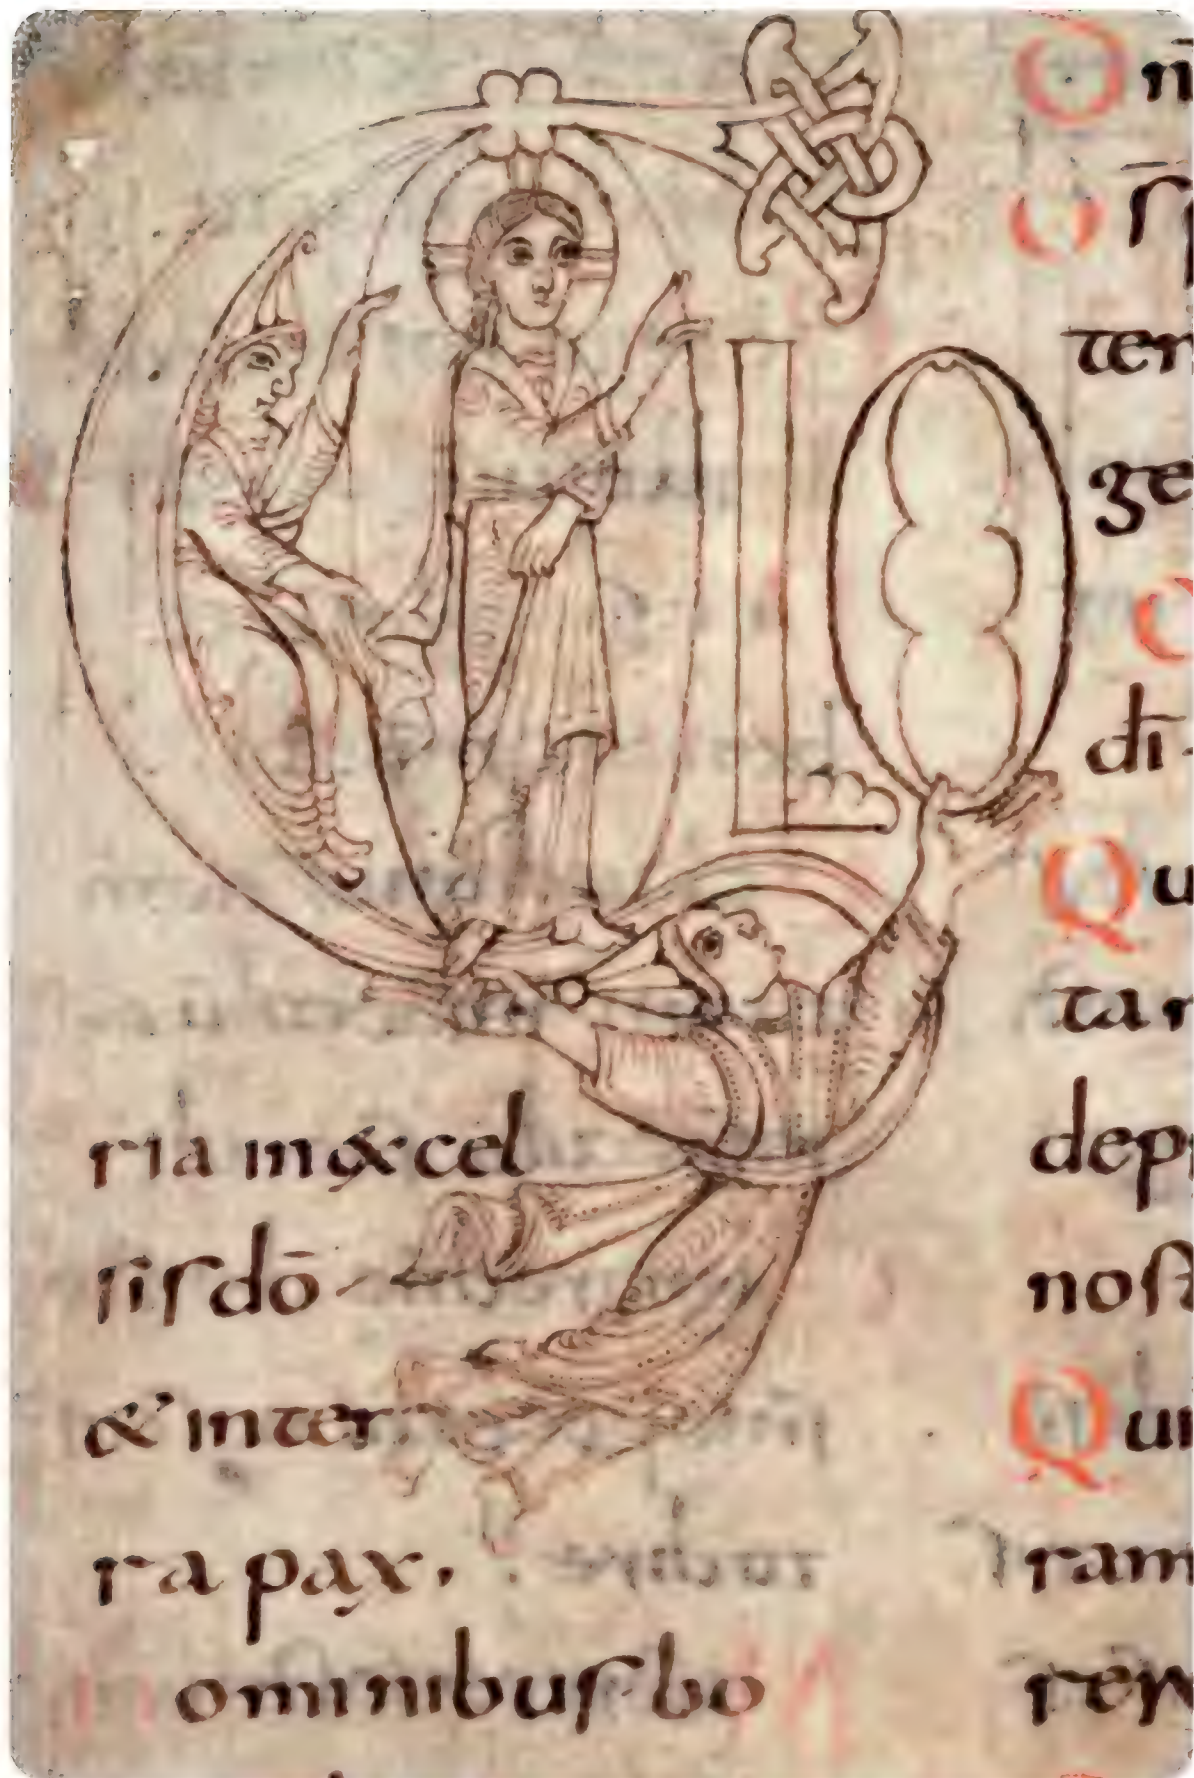 GLO
ria in &xcel
sis dō
& inter
ra pax.
hominibus bo
ter
ge
di
Qu
tar
dep
nost
Qui
ram